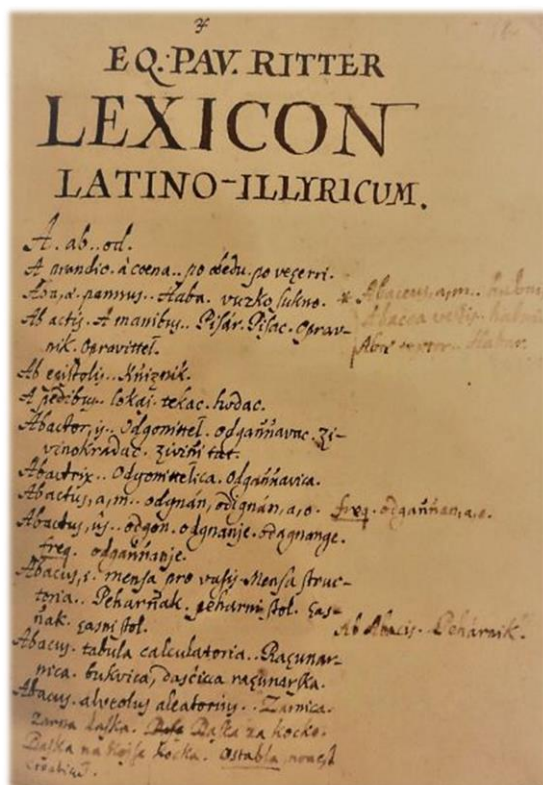 EQ. PAV. RITTER
LEXICON
LATINO-ILLYRICUM.
A. ab.. od.
A prandio. à coena.. po obedu. po veçerri.
Aba, æ. pannus.. Haba. vuzko sukno.
Ab actis. A manibus.. Pisár. Pisac. Oprav-
nik. Opravitteł.
Ab epistolis.. Kńiznik.
A pedibus.. lokaj. tekac. hodac.
Abactor, is.. Odgonitteł. odgańńavac. zi-
vinokradac. zivini tat.
Abactrix.. Odgonittelica. odgańńavica.
Abactus, a, m.. odgnán, odignán, a, o. freq. odgańńan, a, o.
Abactus, ûs.. odgon. odgnanje. odagnange.
freq. odgańńanje.
Abacus, i. mensa pro vasis. Mensa struc-
toria.. Peharńak. peharni stol. ças-
ńak. çasni stol.
Ab Abacis. Pehárnik.
Abacus. tabula calculatoria.. Raçunar-
nica. bukvica, dasćica raçunarska.
Abacus. alveolus aleatorius.. Zarnica.
Zarna daska. Daska za kocke.
Daska na kojse kocka. Ostabla